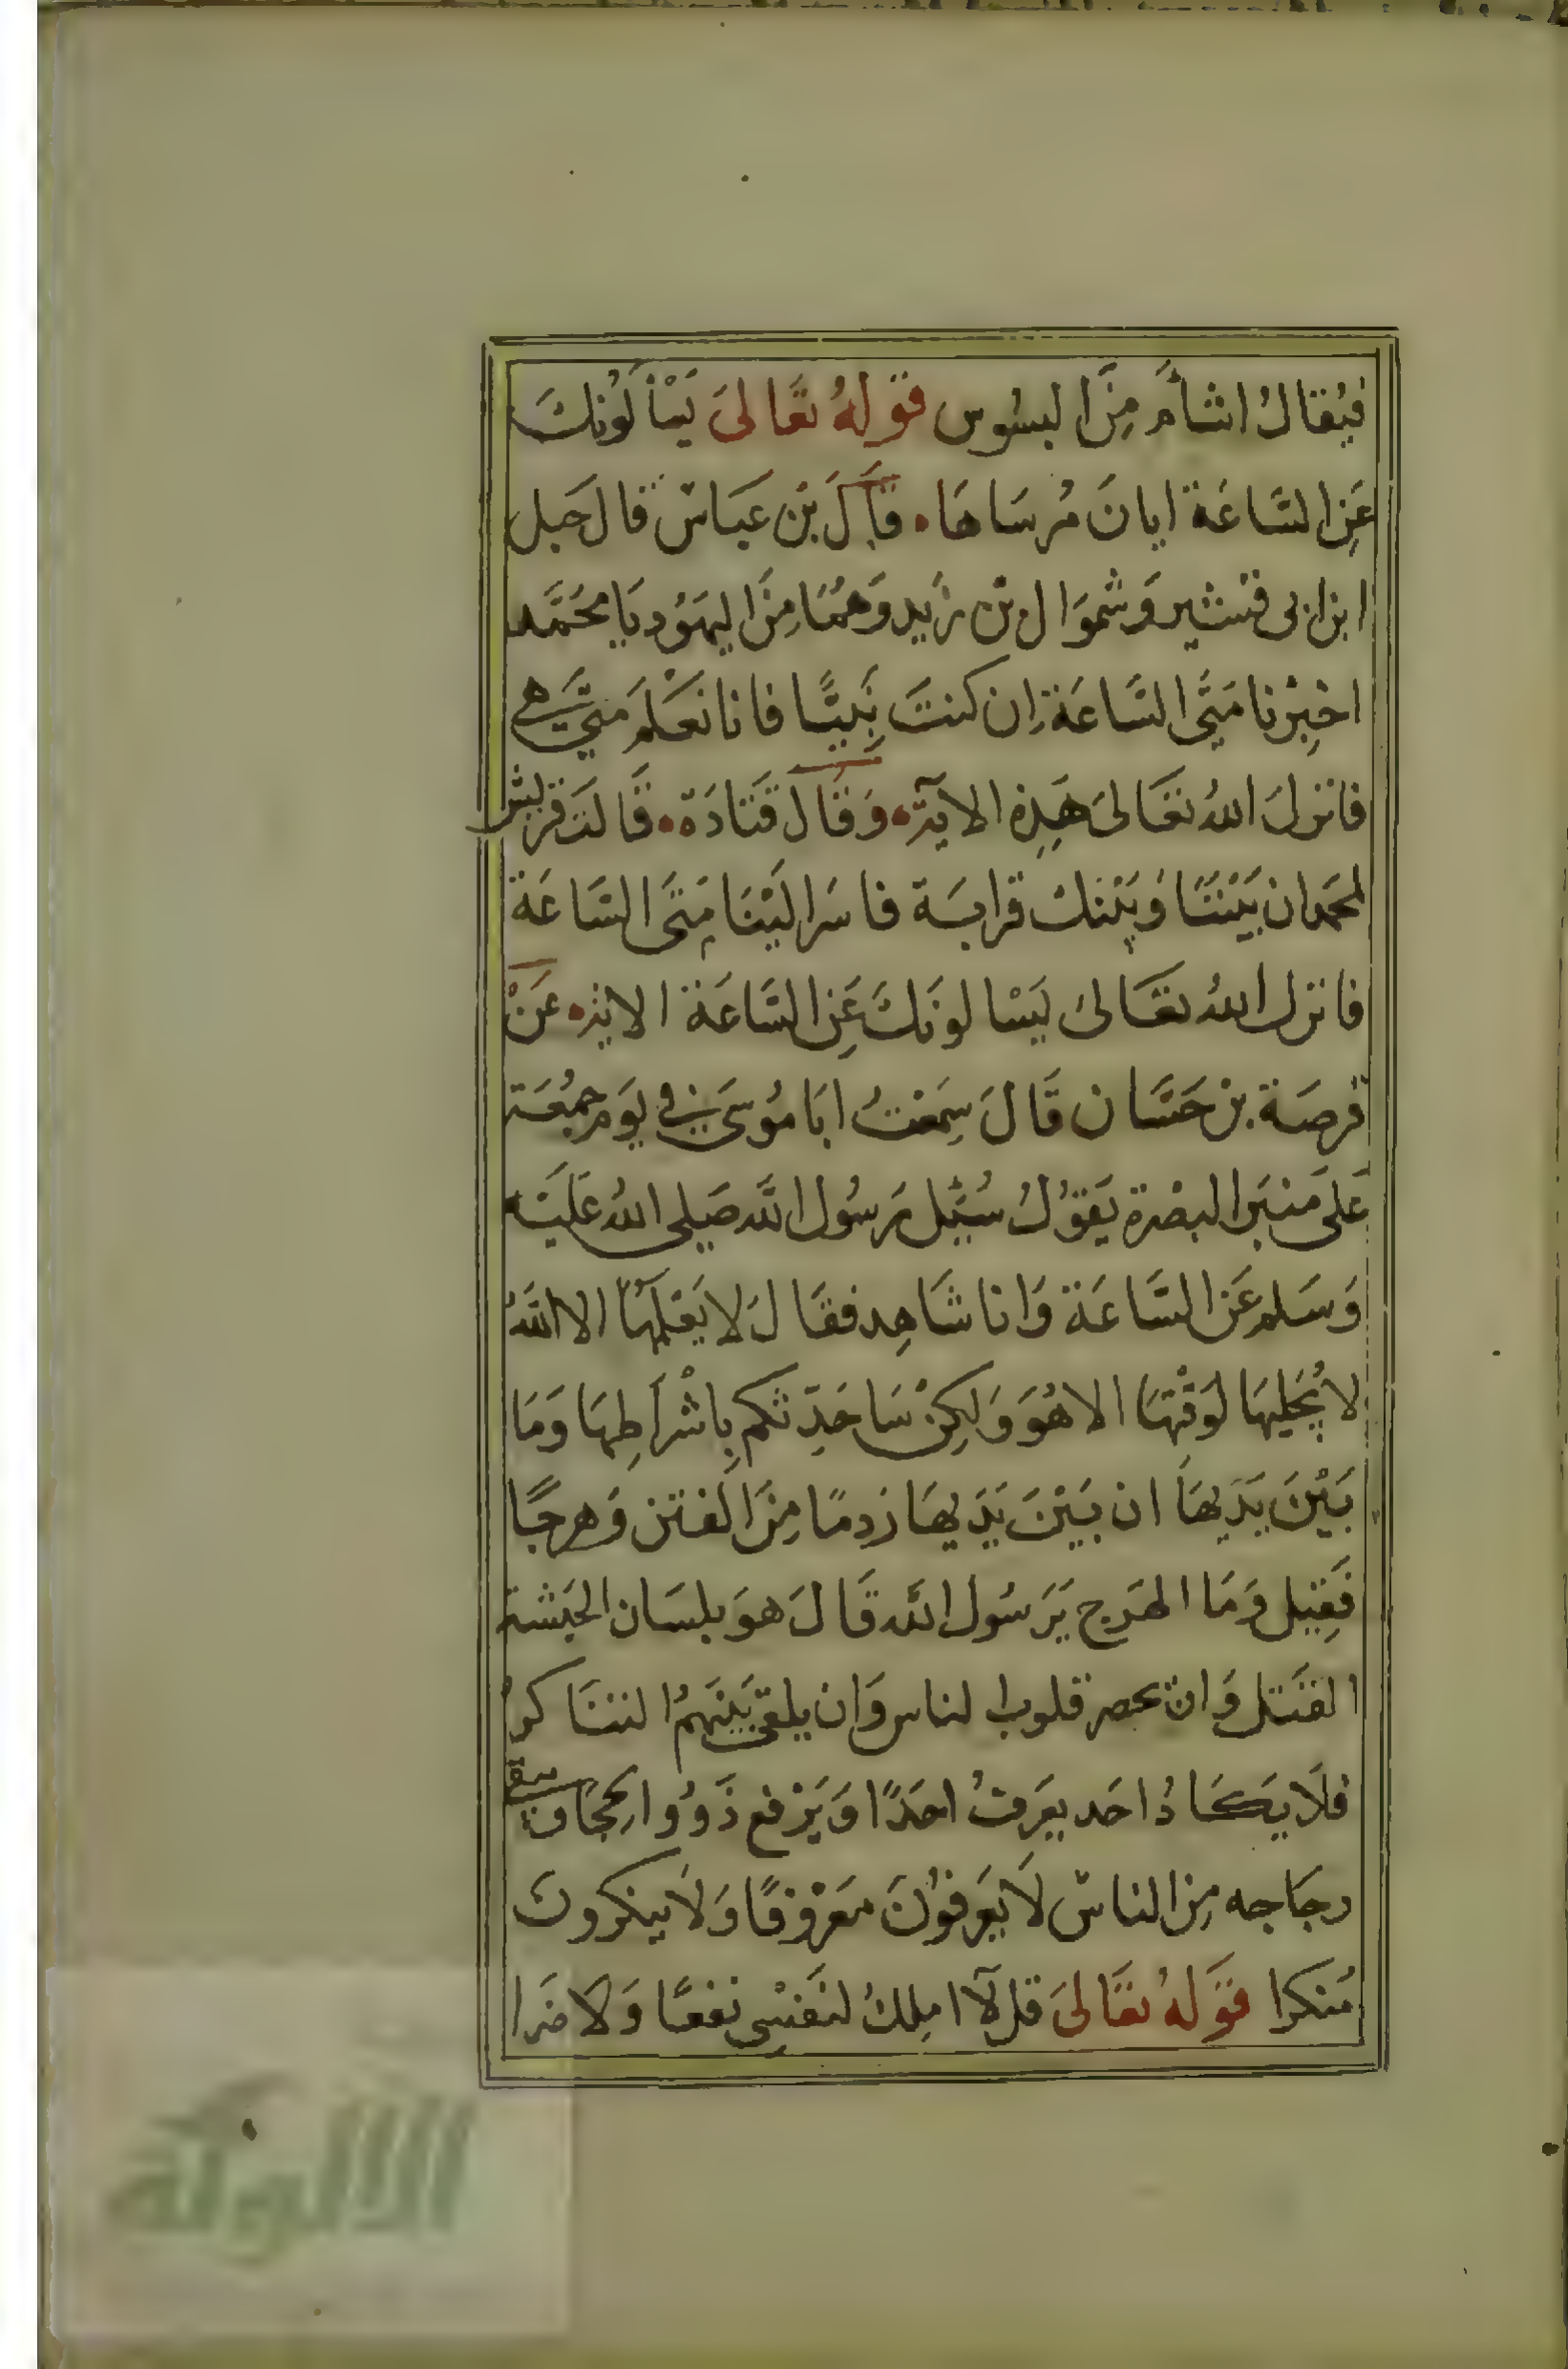 فيُقالُ اشأم مِنَ البسُوس قوله تعَالىَ يَسْألونكَ
عَنِ السَّاعَة ايانَ مُرسَاهَا. قالَ بن عَباسٌ قال جَبل
ابن ابى قشير وَشموَال بن زيد وَهمَا مِنَ اليهَوُد يَا محَمَّد
اخبِرْنا مَتَى السَّاعَة اِن كنتَ نَبيًّا فانا نعَلم مَتَى هي
فانزلَ اللهُ تعَالىَ هَذِهِ الايَة. وَقال قتَادَة. قَالت قريش
لمحمد ان بَيْننَا وَبَيْنكَ قرابَة فاسَر اليْنَا مَتَى السَّاعَة
فانزل اللهُ تعَالىَ يَسْالونَكَ عَنِ السَّاعَة الاية. عَنْ
قرصَة بن حَسَّان قَالَ سَمِعْتُ ابَا مُوسَى في يَوم جمُعَة
عَلى مَنبَر البصْرة يَقوُلُ سُئِل رَسُول الله صَلى اللهُ عَليْه
وَسَلم عَن السَّاعَة وَانا شَاهِد فقَالَ لا يَعْلمهَا الا اللهُ
لا يُجَليهَا لوَقْتِهَا الا هُوَ وَلكِنْ سَاحَدِّثكم بِاشْرَاطِهَا وَمَا
بَيْنَ يَدَيهَا ان بَيْنَ يَدَيهَا رَدمًا مِنَ الفتن وَهرجًا
فَقِيل وَمَا الهَرج يَرَسُول الله قَالَ هوَ بلسَان الحَبَشة
القَتل وَان تحصر قلوب الناس وَان يلقى بَيْنَهمُ التنَاكر
فلاَ يكَادُ احَد يعَرفُ احَدًا وَيَرْفع ذَوُوا الحِجَا وتبقى
رجَاجه مِن الناس لاَ يَعَرفوُنَ مَعَرْوفًا وَلاَ ينكروُنَ
مُنكرا قوَلهُ تعَالىَ قل لاَ املِكُ لنَفسِى نفعًا وَلاَ ضرَا
الألوكة